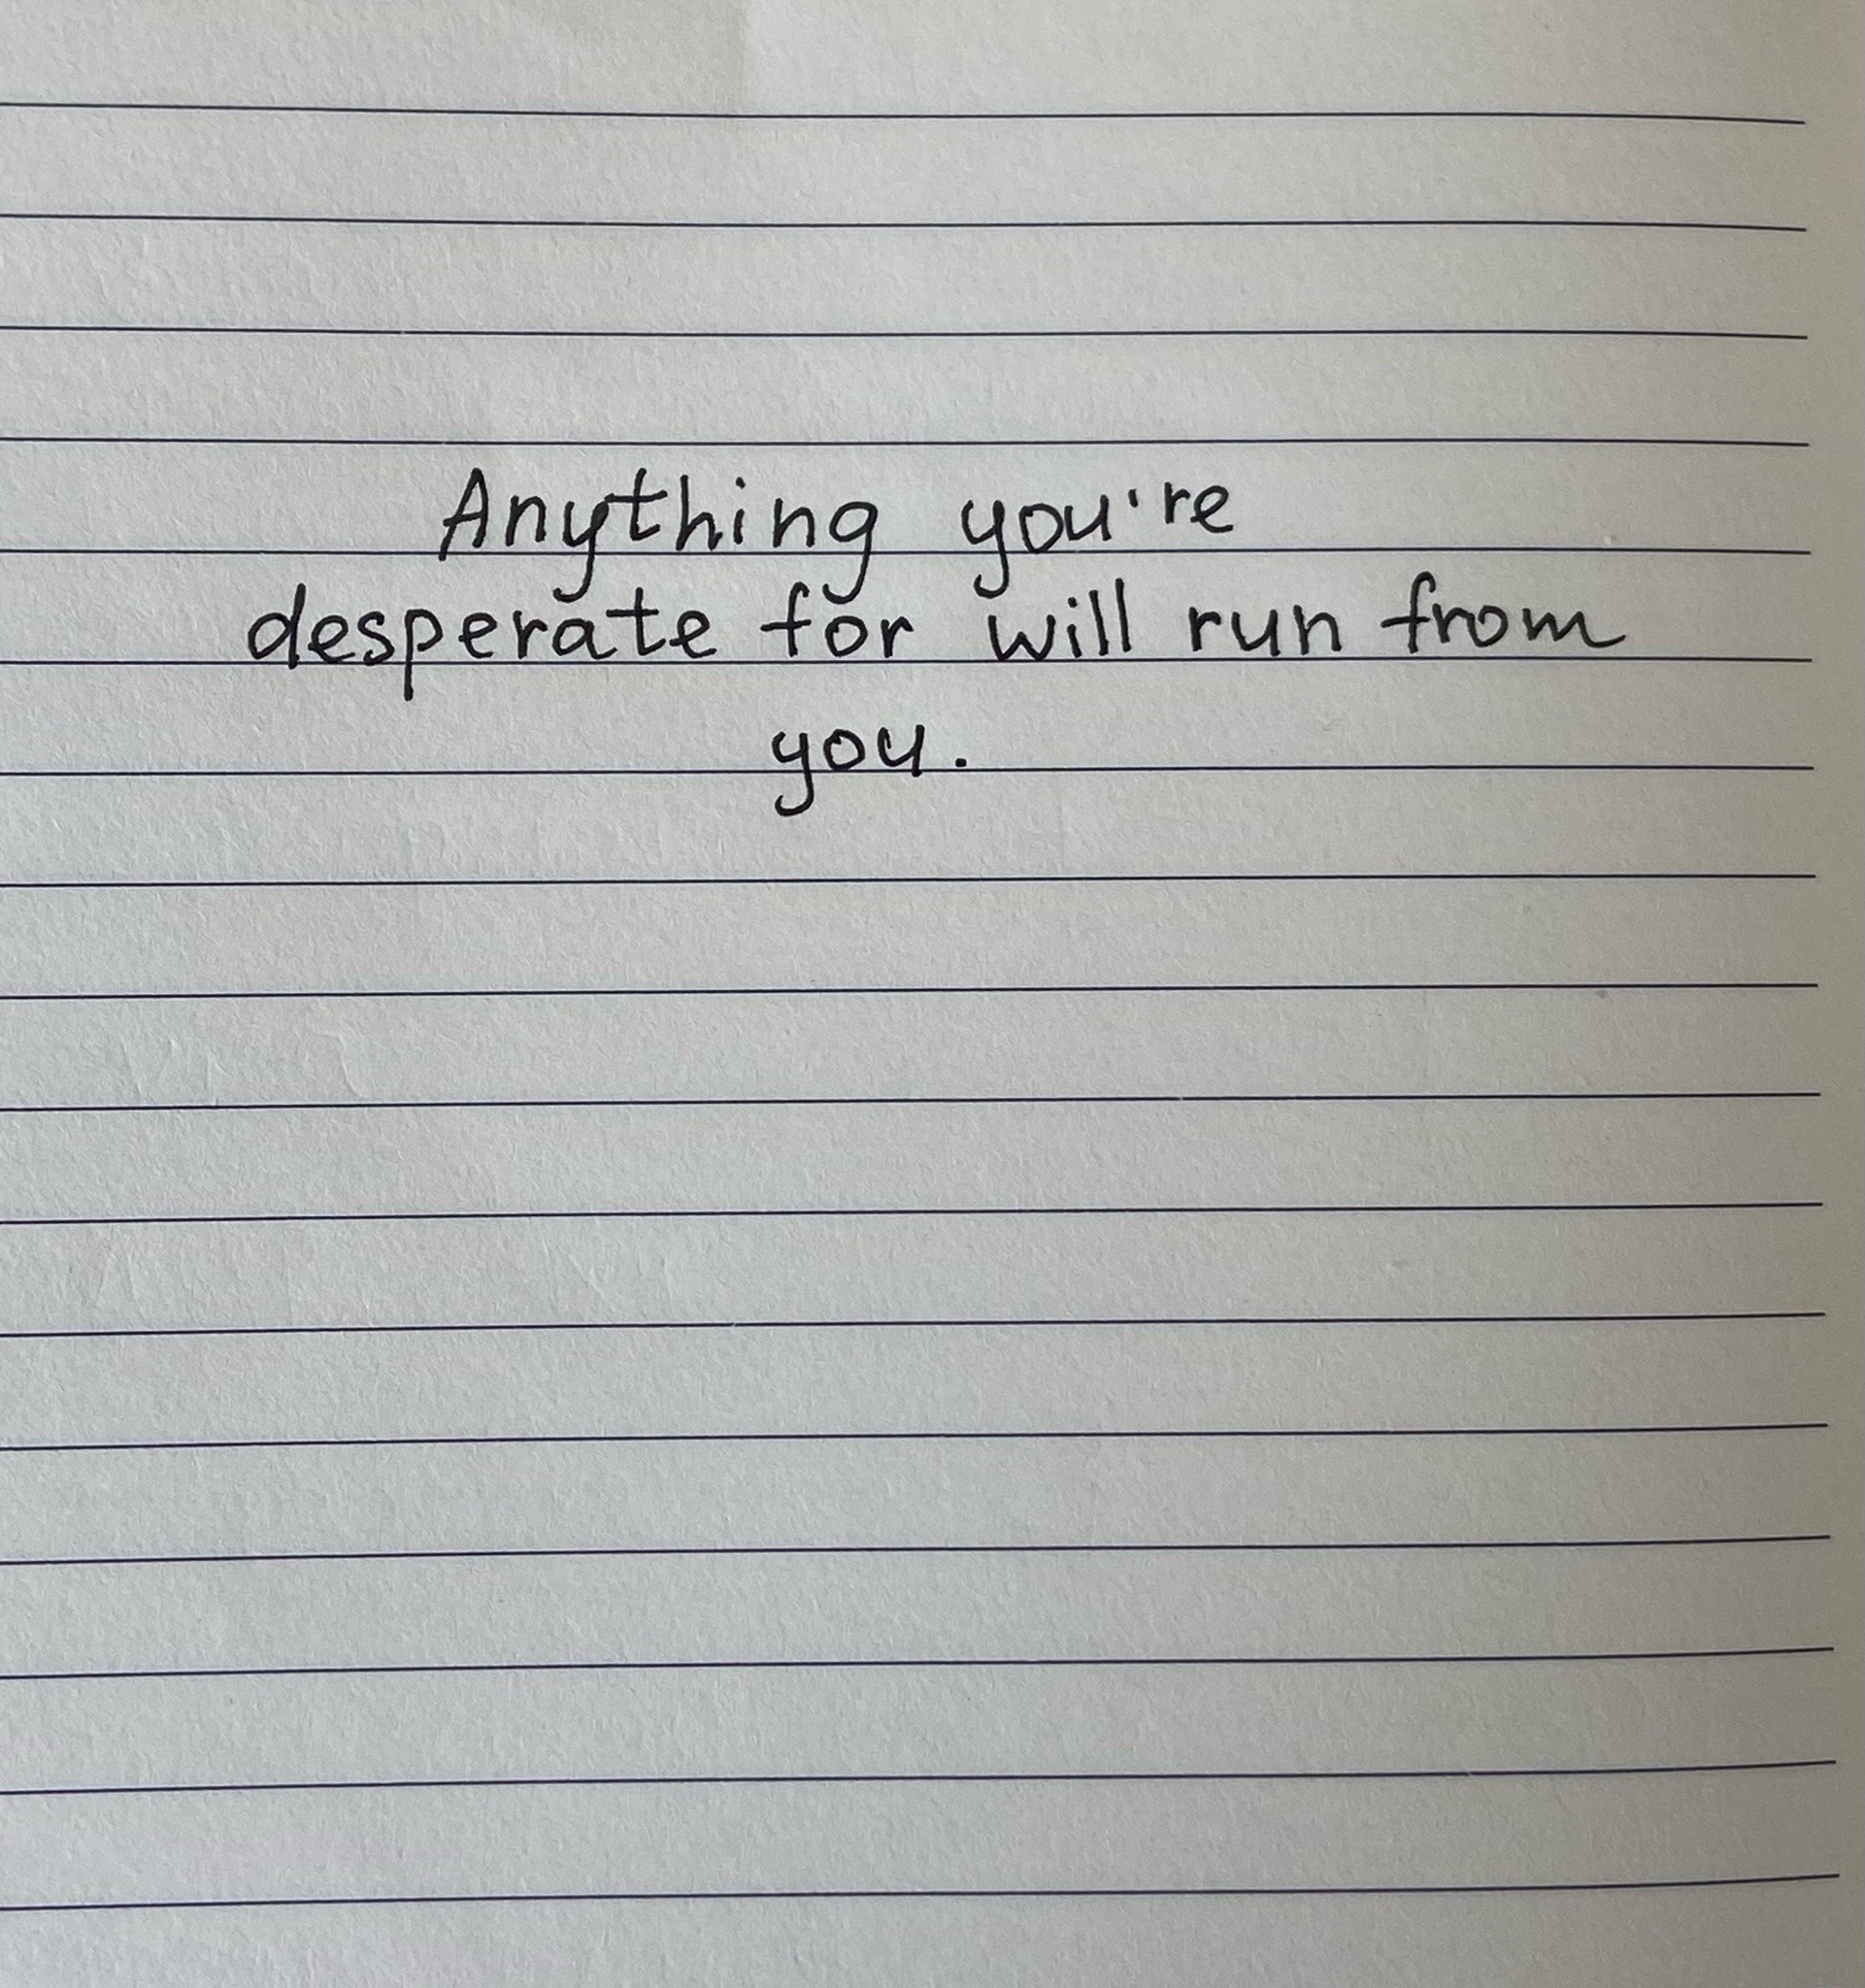 Anything you're
desperate for will run from
you.